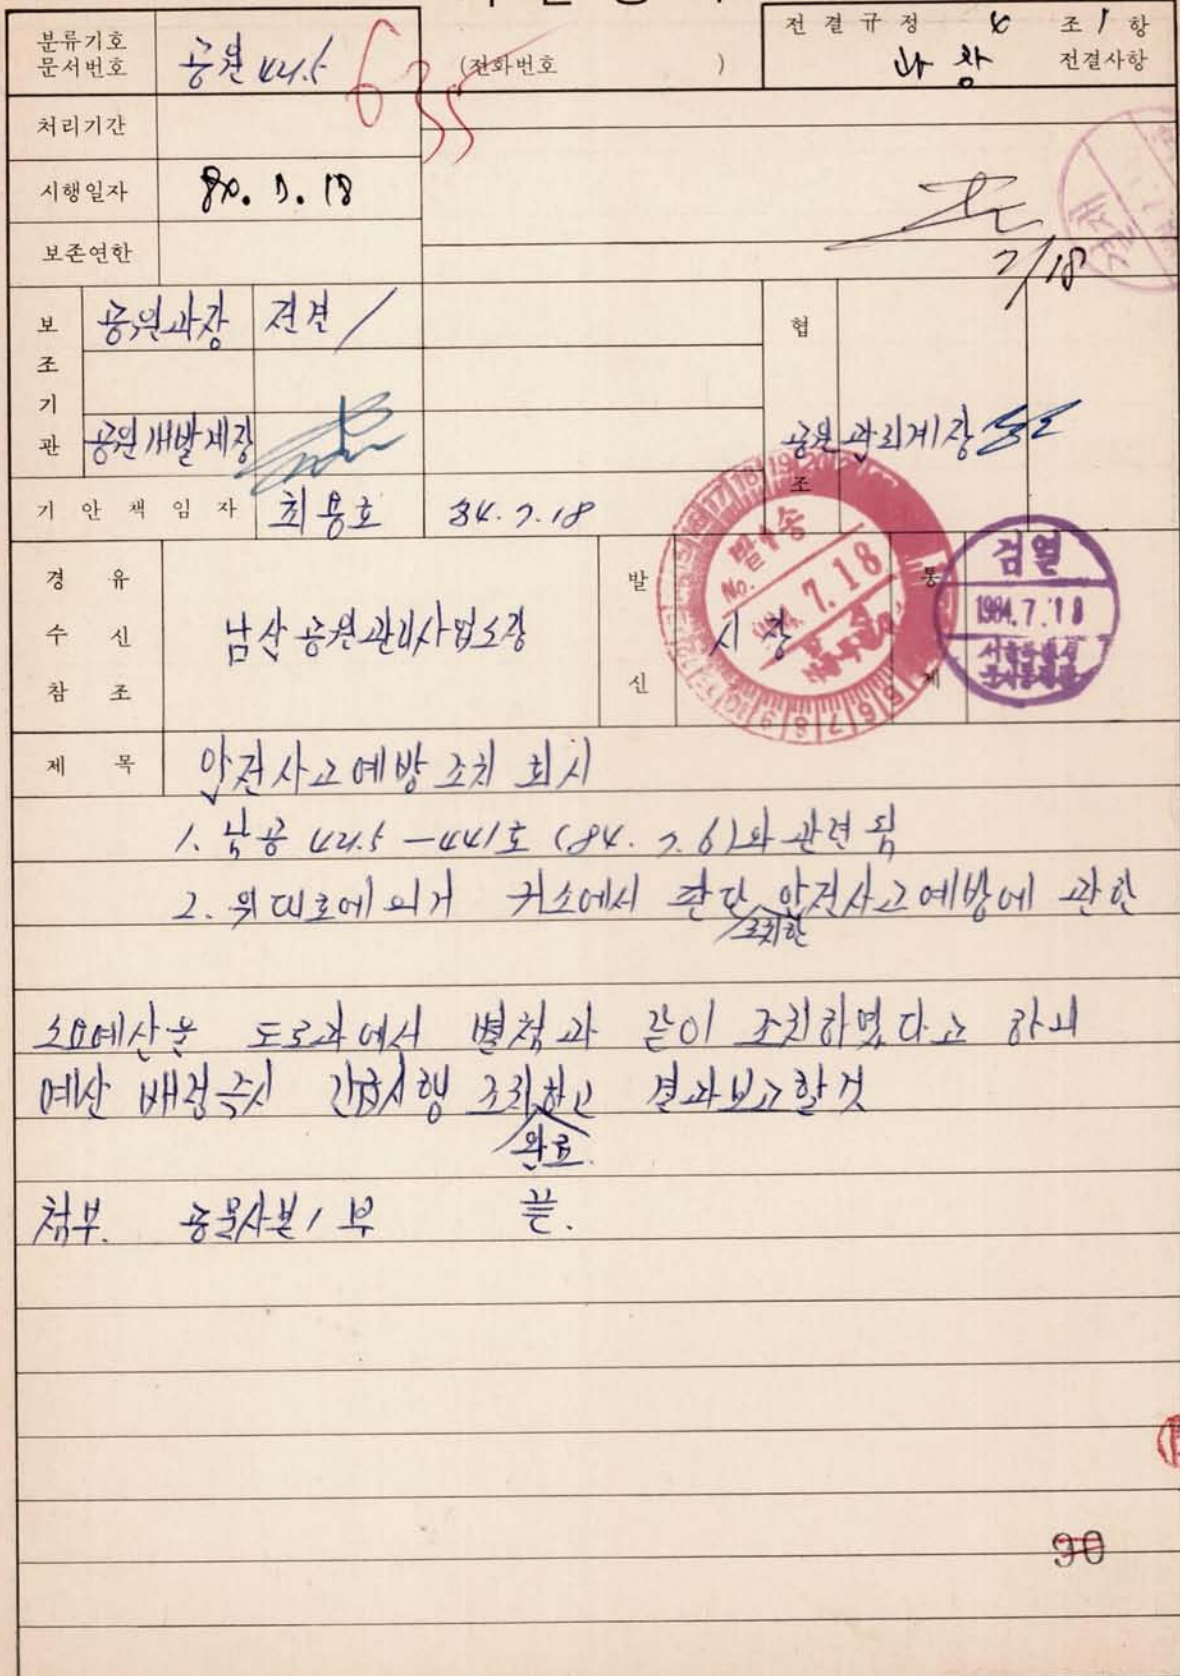 분류기호
문서번호
공원 442.5
635
(전화번호 )
전결규정 4 조 1 항
전결사항
처리기간
시행일자
84. 7. 18
보존연한
7/18
보조기관
공원과장 전결
공원개발계장
협조
공원관리계장
기안책임자 최용호 84. 7. 18
경유
수신
참조
남산공원관리사업소장
발신
시장
통제
발송
No.
7.18
검열
1984.7.18
제목 안전사고예방 조치 회시
1. 남공 442.5 - 441호 (84. 7. 6)와 관련 됨
2. 위 대호에 의거 귀소에서 판단 안전사고예방에 관한
조치한
소요예산을 도로과에서 별첨과 같이 조치하였다고 하니
예산 배정즉시 긴급시행 조치하고 결과보고할것
완료
첨부. 공문사본 1부 끝.
90